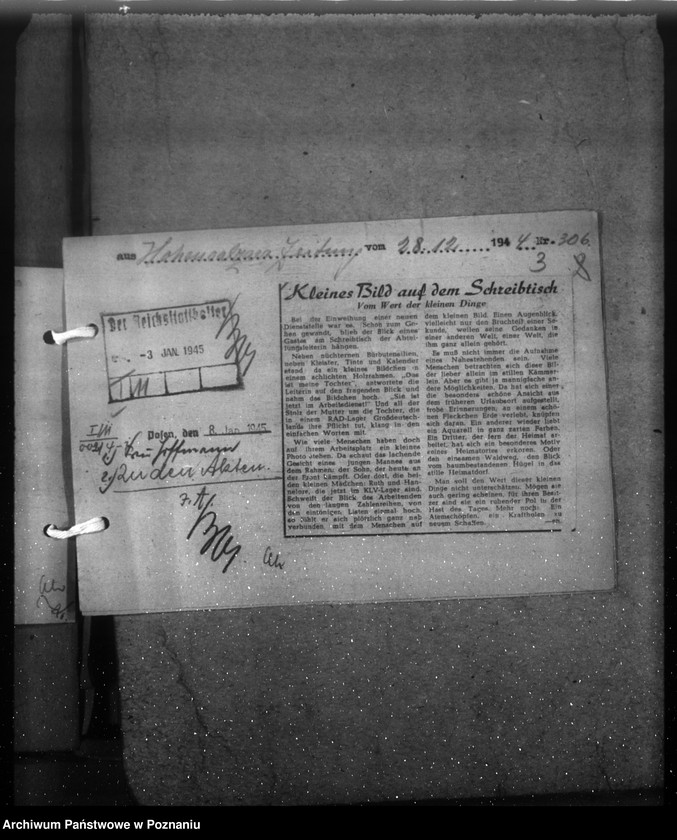 aus Hohensalzaer Zeitung vom 28.12. 1944 Nr. 306
3 8
Der Reichsstatthalter
-3 JAN. 1945
I/M
Posen, den 8. Jan. 1945
Zu den Akten.
z.A.
Kleines Bild auf dem Schreibtisch
Vom Wert der kleinen Dinge
Bei der Einweihung einer neuen
Dienststelle war es. Schon zum Ge-
hen gewandt, blieb der Blick eines
Gastes am Schreibtisch der Abtei-
lungsleiterin hängen.
Neben nüchternen Büroutensilien,
neben Kleister, Tinte und Kalender
stand da ein kleines Bildchen in
einem schlichten Holzrahmen. „Das
ist meine Tochter", antwortete die
Leiterin auf den fragenden Blick und
nahm das Bildchen hoch. „Sie ist
jetzt im Arbeitsdienst!" Und all der
Stolz der Mutter um die Tochter, die
in einem RAD-Lager Großdeutsch-
lands ihre Pflicht tut, klang in den
einfachen Worten mit.
Wie viele Menschen haben doch
auf ihrem Arbeitsplatz ein kleines
Photo stehen. Da schaut das lachende
Gesicht eines jungen Mannes aus
dem Rahmen, der Sohn, der heute an
der Front kämpft. Oder dort, die bei-
den kleinen Mädchen: Ruth und Han-
nelore, die jetzt im KLV-Lager sind.
Schweift der Blick des Arbeitenden
von den langen Zahlenreihen, von
den eintönigen Listen einmal hoch,
so fühlt er sich plötzlich ganz nah
verbunden mit dem Menschen auf
dem kleinen Bild. Einen Augenblick,
vielleicht nur den Bruchteil einer Se-
kunde, weilen seine Gedanken in
einer anderen Welt, einer Welt, die
ihm ganz allein gehört.
Es muß nicht immer die Aufnahme
eines Nahestehenden sein. Viele
Menschen betrachten sich diese Bil-
der lieber allein im stillen Kämmer-
lein. Aber es gibt ja mannigfache an-
dere Möglichkeiten. Da hat sich einer
die besonders schöne Ansicht aus
dem früheren Urlaubsort aufgestellt,
frohe Erinnerungen, an einem schö-
nen Fleckchen Erde verlebt, knüpfen
sich daran. Ein anderer wieder liebt
ein Aquarell in ganz zarten Farben.
Ein Dritter, der fern der Heimat ar-
beitet, hat sich ein besonderes Motiv
seines Heimatortes erkoren. Oder
den einsamen Waldweg, den Blick
vom baumbestandenen Hügel in das
stille Heimatdorf.
Man soll den Wert dieser kleinen
Dinge nicht unterschätzen. Mögen sie
auch gering scheinen, für ihren Besit-
zer sind sie ein ruhender Pol in der
Hast des Tages. Mehr noch: Ein
Atemschöpfen, ein Kraftholen zu
neuem Schaffen.
Archiwum Państwowe w Poznaniu